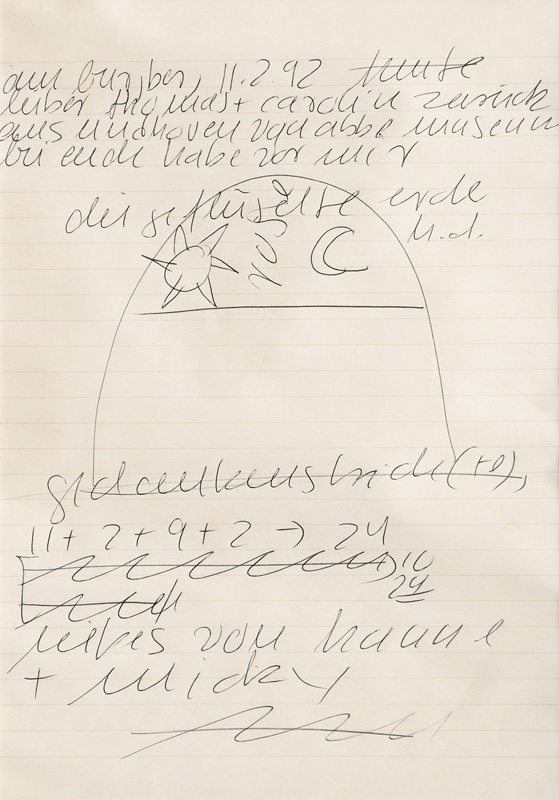 am burgberg, 11.2.92 heute
lieber thomas + carolin zurück
aus eindhoven van abbe museum
ende habe vor mir
die geflügelte erde
M.d.
gedankenstriche(+e),
11+2+9+2 → 24
24
liebes von hanne
+ micky